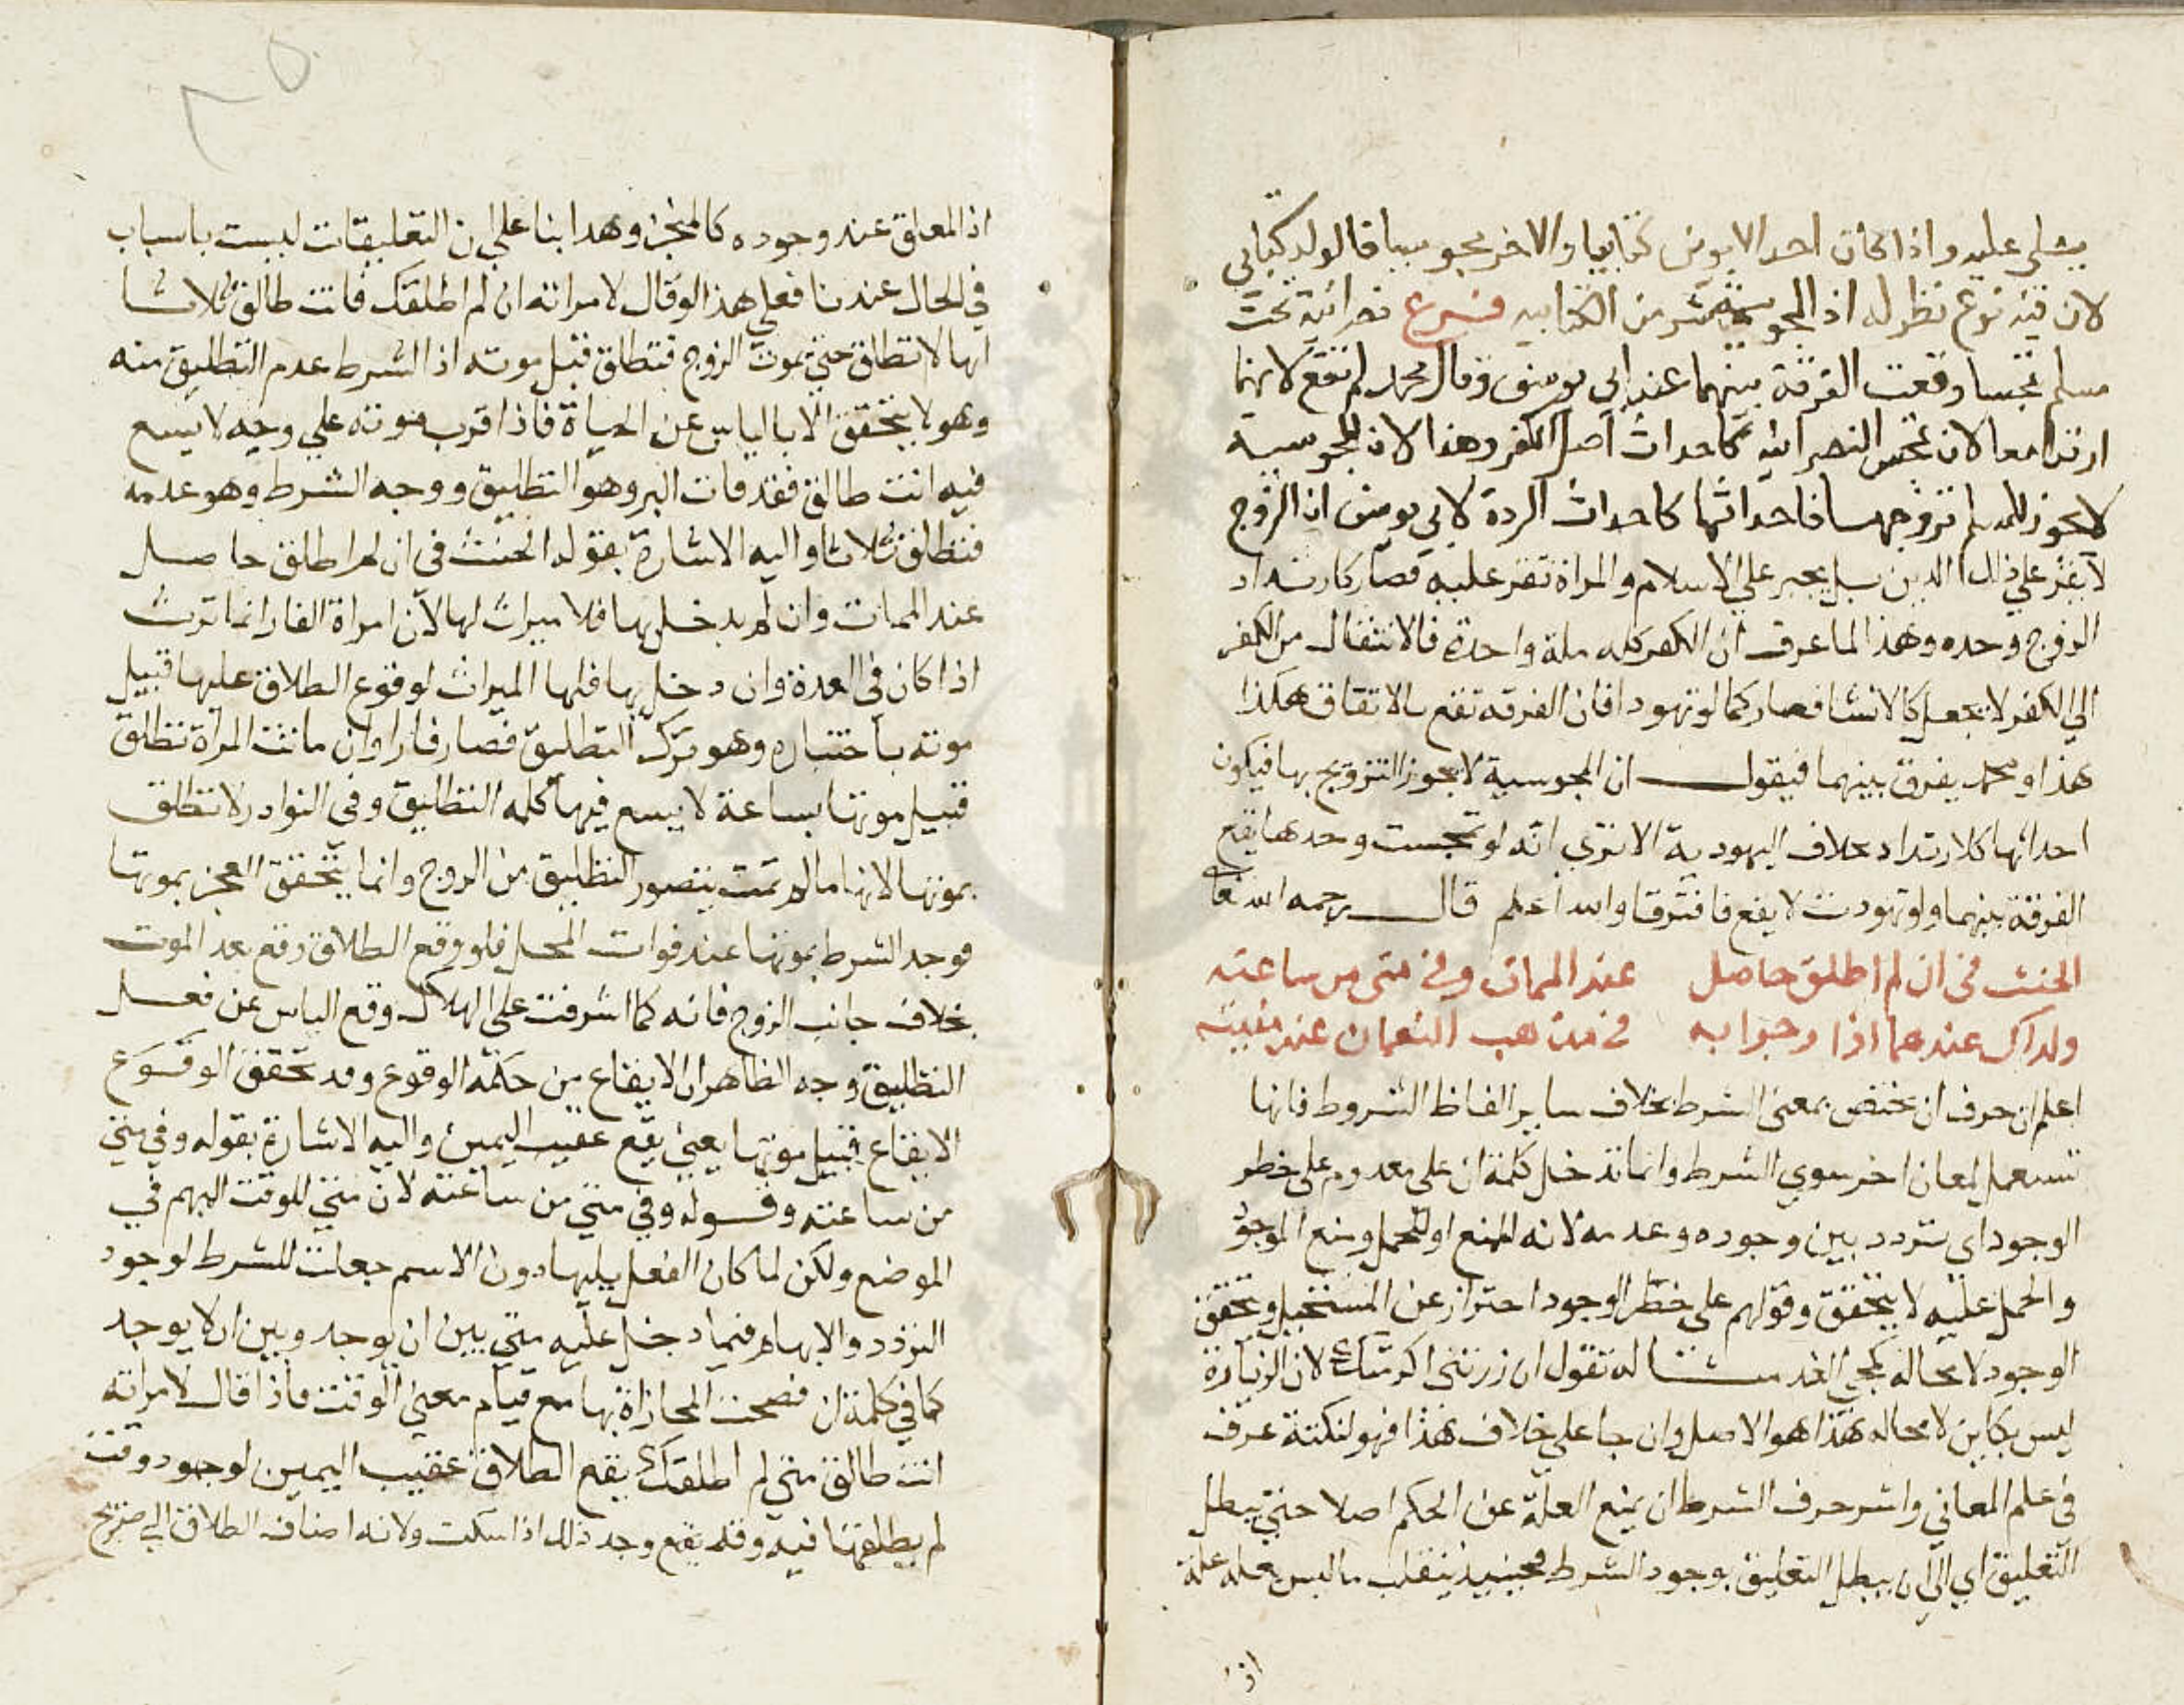 يعلى عليه واذا كان احد الابوين كتابيا والاخر مجوسيا فالولد كتابي
لان فيه نوع نظر له اذ المجوسية شر من الكتابيه فرع نصرانية تحت
مسلم تمجسا وقعت الفرقة بينهما عند ابي يوسف وقال محمد لم تقع لانهما
ارتدا معا لان تمجس النصرانية كاحداث اصل الكفر وهذا لان المجوسية
لا يجوز للمسلم تزوجها فاحداثها كاحداث الردة لابي يوسف ان الزوج
لا يقر على ذلك الدين بل يجبر على الاسلام والمراة تقر عليه فصار كارتداد
الزوج وحده وهذا لما عرف ان الكفر كله ملة واحدة فالانتقال من الكفر
الي الكفر لا يجعل كالانشا فصار كما لو تهودا فان الفرقه تقع بالاتفاق هكذا
هذا ومحمد يفرق بينهما فيقول ان المجوسية لا يجوز التزويج بها فيكون
احداثها كلارتداد بخلاف اليهودية الا تري انه لو تمجست وحدها يقع
الفرقة بينهما ولو تهودت لا يقع فافترقا والله اعلم قال رحمه الله تعا
الحنث في ان لم اطلق حاصل عند الممات وفي متى من ساعته
ولذاك عندهما اذا وجوابه في مذهب النعمان عند نيته
اعلم ان حرف ان مختص بمعنى الشرط بخلاف ساير الفاظ الشروط فانها
تستعمل لمعان اخر سوي الشرط وانما تدخل كلمة ان على معدوم على خطر
الوجود اي يتردد بين وجوده وعدمه لانه للمنع او للحمل ومنع الموجود
والحمل عليه لا يتحقق وقولهم على خطر الوجود احتراز عن المستحيل ومتحقق
الوجود لا محالة كمجي الغد مثاله تقول ان زرتني اكرمتك لان الزيارة
ليس بكاين لا محاله هذا هو الاصل وان جا على خلاف هذا فهو لنكتة عرف
في علم المعاني واثر حرف الشرط ان يمنع العلة عن الحكم اصلا حتي يبطل
التعليق اي الي ان يبطل التعليق بوجود الشرط فحينيذ ينقلب ما ليس بعلة علة
اذ
اذ المعلق عند وجوده كالمنجز وهذا بنا علي ان التعليقات ليست باسباب
في الحال عندنا فعلي هذا لو قال لامراته ان لم اطلقك فانت طالق ثلاثا
انها لا تطلق حتي يموت الزوج فتطلق قبل موته اذ الشرط عدم التطليق منه
وهو لا يتحقق الا بالياس عن الحياة فاذا قرب موته علي وجه لا يسع
فيه انت طالق فقد فات البر وهو التطليق ووجد الشرط وهو عدمه
فتطلق ثلاثا واليه الاشارة بقوله الحنث في ان لم اطلق حاصل
عند الممات وان لم يدخل بها فلا ميراث لها لان امراة الفار انما ترث
اذا كان في العدة وان دخل بها فلها الميراث لوقوع الطلاق عليها قبيل
موته باختياره وهو ترك التطليق فصار فارا وان ماتت المراة تطلق
قبيل موتها بساعة لا يسع فيها كلمه التطليق وفي النوادر لا تطلق
بموتها لانها ما لم تمت يتصور التطليق من الزوج وانما يتحقق العجز بموتها
فوجد الشرط بموتها عند فوات المحل فلو وقع الطلاق وقع بعد الموت
بخلاف جانب الزوج فانه كما اشرفت على الهلاك وقع الياس عن فعل
التطليق وجه الظاهر ان الايقاع من حكمه الوقوع وقد تحقق الوقوع
الايقاع قبيل موتها يعني يقع عقيب اليمين واليه الاشارة بقوله وفي متي
من ساعته وقوله وفي متي من ساعته لان متي للوقت المبهم في
الموضع ولكن لما كان الفعل يليها دون الاسم جعلت للشرط لوجود
التردد والابهام فيما دخل عليه متي بين ان يوجد وبين ان لا يوجد
كما في كلمة ان فصحت المجازاة بها مع قيام معني الوقت فاذا قال لامراته
انت طالق متي لم اطلقك يقع الطلاق عقيب اليمين لوجود وقت
لم يطلقها فيه وقد يقع وجد ذلك اذا سكت ولانه اضاف الطلاق الي صريح